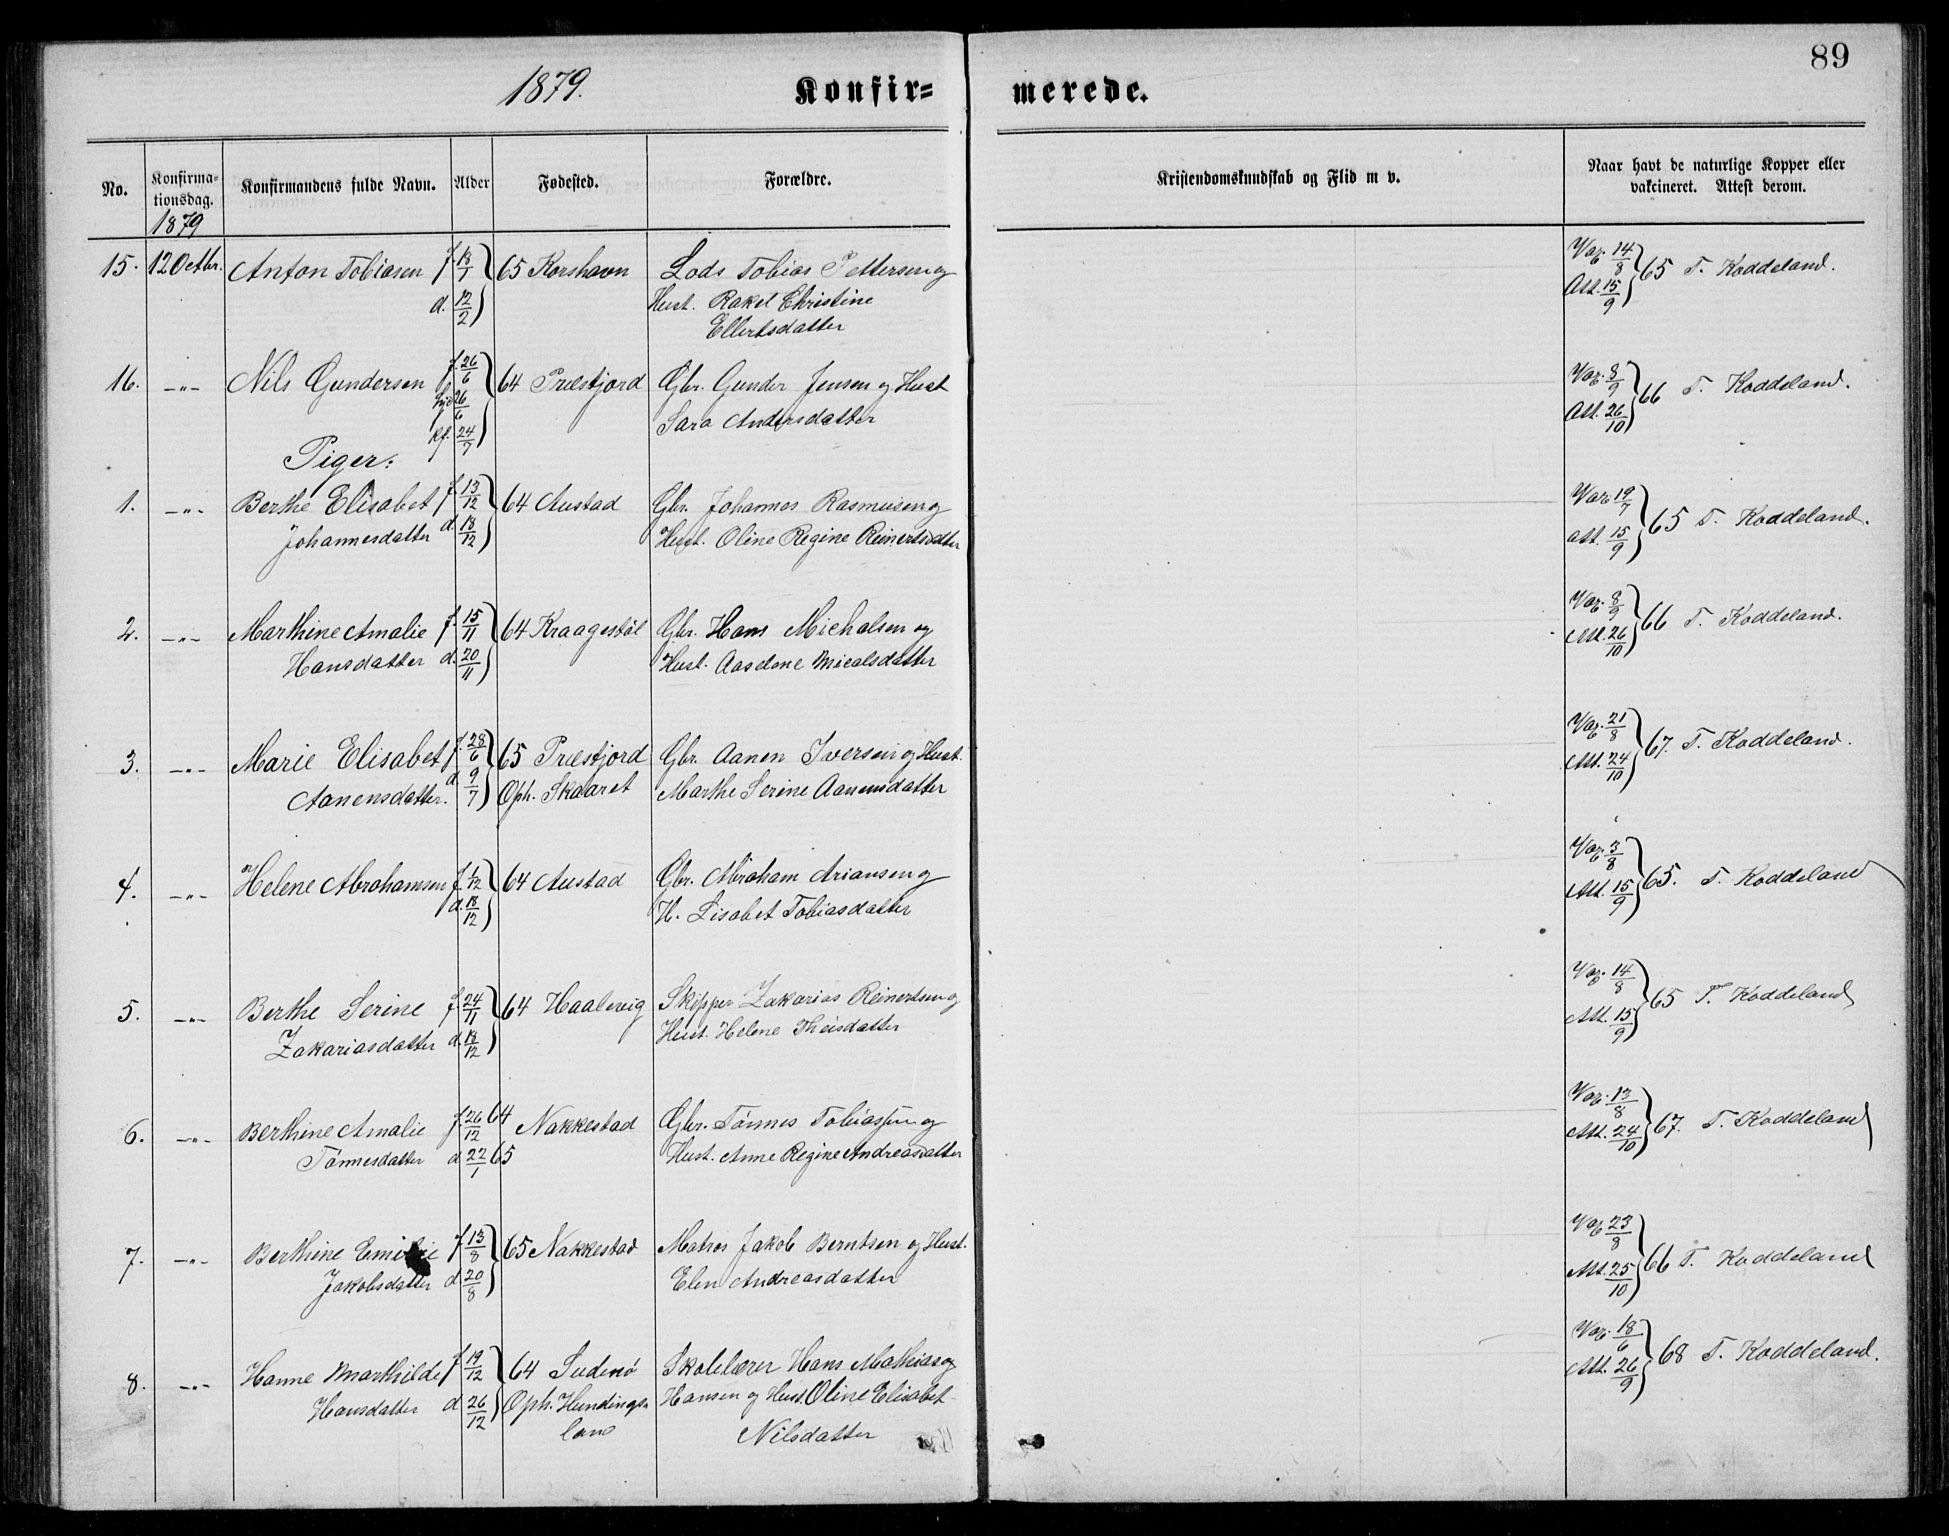 89
1879. Konfir= merede.
No. Konfirma-tionsdag. Konfirmandens fulde Navn. Alder Fødested. Forældre. Kristendomskundskab og Flid m v. Naar havt de naturlige Kopper eller vakcineret. Attest derom.
1879
15. 12 Octbr. Anton Tobiasen f. 18/1 65 Korshavn Lods Tobias Pettersen og Vac. 14/8 65 T. Koddeland.
d. 12/2 Hust. Rakel Christine Att. 15/9
Ellertsdatter
16. -"- Nils Gundersen f. 26/6 64 Præstjord Gbr. Gunder Jensen og Hust Vac. 8/9 66 T. Koddeland.
26/6 Sara Andersdatter Att. 26/10
kf. 24/7
Piger:
1. -"- Berthe Elisabet f. 13/12 64 Austad Gbr. Johannes Rasmusen og Vac. 19/7 65 T. Koddeland.
Johannesdatter d. 18/12 Hust. Oline Regine Reinertsdatter att. 15/9
2. -"- Marthine Amalie f. 15/11 64 Kraagestøl Gbr. Hans Michalsen og Vac. 8/9 66 T. Koddeland.
Hansdatter d. 20/11 Hust. Aaselene Micalsdatter Att. 26/10
3. -"- Marie Elisabet f. 28/6 65 Præstjord Gbr. Aanen Iversen og Hust. Vac. 21/8 67. T. Koddeland.
Aanensdatter. d. 9/7 Oph. Skaaret Marthe Serine Aanensdatter Att. 24/10
4. -"- Helene Abrahamsen f. 1/12 64 Austad Gbr. Abraham Ariansen og Vac. 3/8 65. T. Koddeland
d. 18/12 H. Lisabet Tobiasdatter Att. 15/9
5. -"- Berthe Serine f. 24/11 64 Haalevig Skipper Zakarias Reinertsen og Vac. 14/8 65 T. Koddeland
Zakariasdatter d. 18/12 Hust. Helene Theisdatter Att. 15/9
6. -"- Berthine Amalie f. 26/12 64 Nakkestad Gbr. Tønnes Tobiassen og Vac. 13/8 67. T. Koddeland
Tønnesdatter d. 22/1 65 Hust. Anne Regine Andreasdatter Att. 24/10
7. -"- Berthine Emilie f. 13/8 65 Nakkestad Matros Jakob Berntsen og Hust. Vac 23/8 66 T. Koddeland
Jakobsdatter d. 20/8 Elen Andreasdatter Att. 25/10
8. -"- Hanne Marthilde f. 19/12 64 Sudenø Skolelærer Hans Mathias Vac. 18/6 68 T. Koddeland.
Hansdatter d. 26/12 Oph. Hundings- Hansen og Hust. Oline Elisabet Att. 26/9
land Nilsdatter